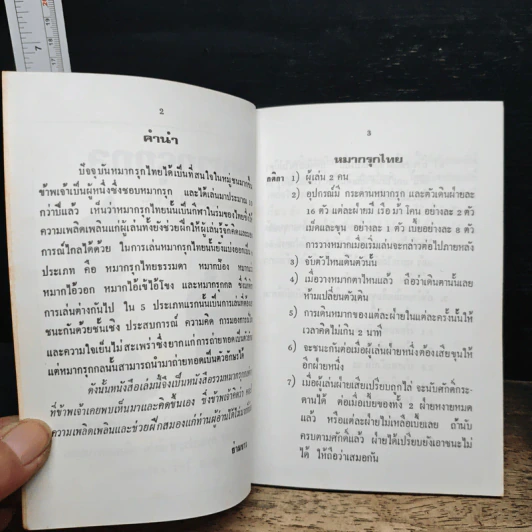 2
คำนำ
ปัจจุบันหมากรุกไทยได้เป็นที่สนใจในหมู่ชนมากขึ้น
ข้าพเจ้าเป็นผู้หนึ่งซึ่งชอบหมากรุก และได้เล่นมาประมาณ
กว่าปีแล้ว เห็นว่าหมากรุกไทยนั้นเป็นกีฬาในร่มของไทยซึ่งให้
ความเพลิดเพลินแก่ผู้เล่นทั้งยังช่วยฝึกให้ผู้เล่นรู้จักคิดและมอง
การณ์ไกลได้ด้วย ในการเล่นหมากรุกไทยนั้นยังแบ่งออก
ประเภท คือ หมากรุกไทยธรรมดา หมากป้อง
หมากไอ้วอก หมากไอ้เช้ไอ้โขง และหมากรุกกล ซึ่งมี
การเล่นต่างกันไป ใน 5 ประเภทแรกนั้นเป็นการเล่นที่ต้อง
ชนะกันด้วยชั้นเชิง ประสบการณ์ ความคิด การมองการณ์
และความใจเย็นไม่สะเพร่าซึ่งยากแก่การถ่ายทอดเป็น
แต่หมากรุกกลนั้นสามารถนำมาถ่ายทอดเป็นตัวอักษรได้
ดังนั้นหนังสือเล่มนี้จึงเป็นหนังสือรวมหมากรุกกล
ที่ข้าพเจ้าเคยพบเห็นมาและคิดขึ้นเอง ซึ่งข้าพเจ้าคิดว่า
ความเพลิดเพลินและช่วยฝึกสมองแก่ท่านผู้อ่านได้ไม่มากก็
3
หมากรุกไทย
กติกา 1) ผู้เล่น 2 คน
2) อุปกรณ์มี กระดานหมากรุก และตัวเดินฝ่ายละ
16 ตัว แต่ละฝ่ายมี เรือ ม้า โคน อย่างละ 2 ตัว
เม็ดและขุน อย่างละ 1 ตัว เบี้ยอย่างละ 8 ตัว
การวางหมากเมื่อเริ่มเล่นจะกล่าวต่อไปภายหลัง
3) จับตัวไหนเดินตัวนั้น
4) เมื่อวางหมากตาไหนแล้ว ถือว่าเดินตานั้นเลย
ห้ามเปลี่ยนตัวเดิน
5) การเดินหมากของแต่ละฝ่ายในแต่ละครั้งนั้นให้
เวลาคิดไม่เกิน 2 นาที
6) จะชนะกันต่อเมื่อผู้เล่นฝ่ายหนึ่งต้องเสียขุนให้
อีกฝ่ายหนึ่ง
7) เมื่อผู้เล่นฝ่ายเสียเปรียบถูกไล่ จะนับศักดิ์กระ-
ดานได้ ต่อเมื่อเบี้ยของทั้ง 2 ฝ่ายหงายหมด
แล้ว หรือแต่ละฝ่ายไม่เหลือเบี้ยเลย ถ้านับ
ครบตามศักดิ์แล้ว ฝ่ายได้เปรียบยังเอาชนะไม่
ได้ ให้ถือว่าเสมอกัน